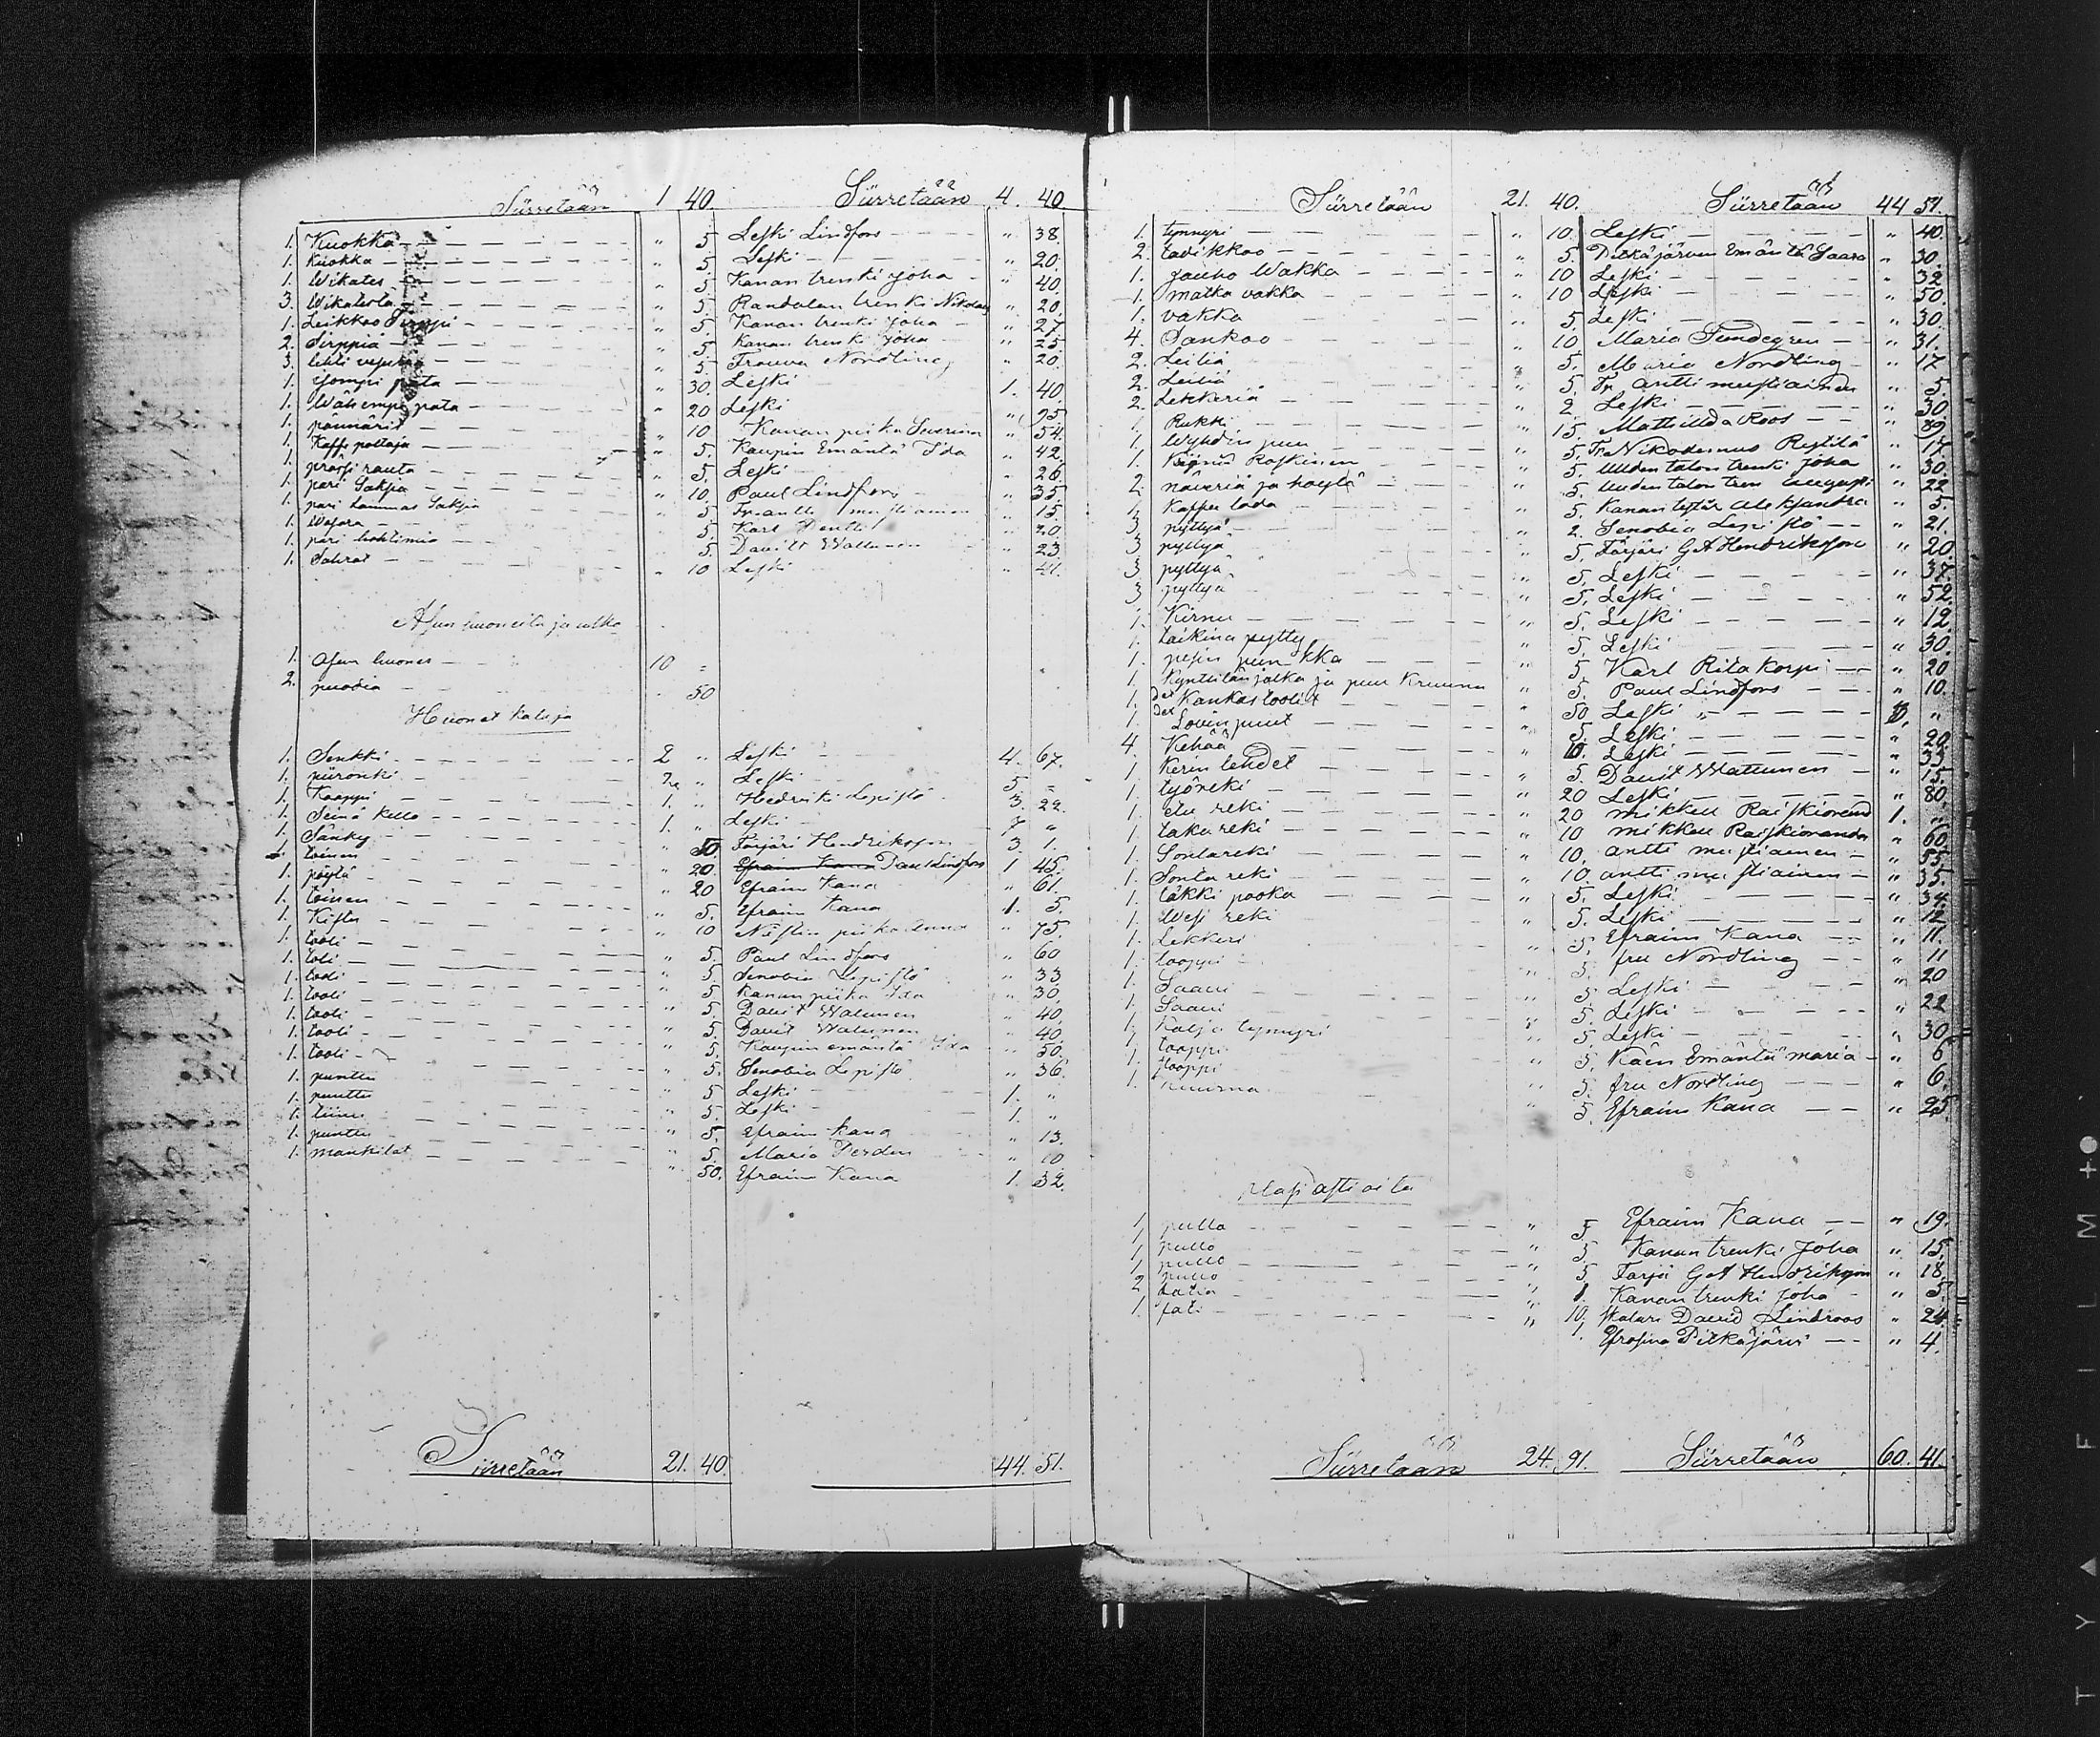 Siirretään 1 40. Siirretään 4. 40.
1. Kuokka " 5 Leski Lindfors " 38.
1. Kuokka " 5 Leski " 20
1. Wikates " 5 Kanan trenki Joha " 40.
3. Wikatesta " 5. Randalan trenki Nikolai " 20.
1. Leikkoo Sirppi " 5. Kanan trenki Joha " 27
2. Sirppiä " 5. Kanan trenki Joha " 25
3. lehti " 5 Frouva Nordling " 20.
1. pata " 30. Leski 1. 40.
1. Wähempi pata " 20 Leski " 95
1. pannäri " 10 Kanan piika Severina " 54.
1. Kaffe " 5. Kaupin Emäntä Ida " 42.
1. rauta " 5. Leski " 26.
1. pari Saksia " 10. Paul Lindfors " 35.
1. pari Lammas Saksia " 5 Fr: antti mustiainen " 15
1. Wasara 5. Karl " 20.
1. pari 5. Davitt " 23.
1. Sahrat " 10 Leski " 41.
Asun huoneita ja
1. asun huones 10 "
2. puodia " 50
Huonet Kaluja
1. Senkki 2 " Leski 4. 67.
1. piironki 2 " Leski 5. "
1. Kaappi 1. " Hedviki Lepistö 3. 22.
1. Seinä Kello 1. " Leski 7 "
1. Sänky " 50. Färjäri Hendriksson 3. 1.
1. toinen " 20. Efraim Kana Paul Lindfors 1 45.
1. pöytä " 20 Efraim Kana " 61.
1. toinen " 5. Efraim Kana 1. 5.
1. Kistu " 10 piika Anna " 75.
1. tooli " 5. Paul Lindfors " 60
1. toli " 5 Senobia Lepistö " 33
1. tooli " 5 Kanan piika Ida " 30.
1. tooli " 5. Davit Watunen " 40.
1. tooli " 5. Davit Watunen " 40.
1. tooli " 5. Kaupin emäntä Ida " 50.
1. tooli " 5. Senobia Lepistö " 36.
1. punttu " 5 Leski 1. "
1. punttu " 5. Leski 1. "
1. tiinu " 5. Efraim Kana " 13.
1. punttu " 5. Maria " 10
1. mankilat " 50. Efraim Kana 1. 32.
Siirretään 21. 40. 44. 51.
Siirretään 21. 40. Siirretään 44 51.
1. tynnyri " 10. Leski " 40.
2. tadikkoo " 5. Pitkäjärven Emäntä Saara " 30.
1. Jauho Wakka " 10 Leski " 32
1. matka vakka " 10 Leski " 50.
1. vakka " 5. Leski " 30.
4. Sankoo " 10 Maria Sundegren " 31.
2. Leiliä " 5. Maria Nordling " 17
2. Leiliä " 5. Fr. antti mustiainen " 5.
2. Lekkeriä " 2 Leski " 30
1. Rukki " 15. Mathillda Roos " 89
1. puu " 5. Fr Nikodemus " 17
1. " 5. Uuden talon trenki Joha " 30.
2. näveriä ja höylä " 5. Uuden talon tren " 22
1. Kaffee lada " 5. Kanan tytär Aleksandra " 5.
3 pyttyä " 2. Senobia Lepistö " 21.
3 pyttyä " 5. Färjäri G A Hendriksson " 20
3 pyttyä " 5. Leski " 37.
3 pyttyä " 5. Leski " 52.
1. Kirnu " 5. Leski " 12.
1. taikina pytty " 5. Leski " 30.
1. pesin " 5 Karl Rita Korpi " 20
1. Kynttilän jalka ja puu Kruunu " 5. Paul Lindfors " 10.
1. det Kankas toolit " 50 Leski "
1. det Lovin puut " 5. Leski " 20
4. Kehää " 10. Leski " 35.
1. Kerin lehdet " 5. Davit Watunen " 15.
1. työreki " 20 Leski " 80.
1. etu reki " 20 mikkeli 1. "
1. taka reki " 10 mikkeli " 60.
1. Sontareki " 10. antti mustiainen " 55.
1. Sonta reki " 10. antti mustiainen " 35.
1. " 5. Leski " 34.
1. Wesi reki " 5. Leski " 12.
1. Lekkeri " 5. Efraim Kana " 11.
1. tooppi " 5. fru Nordling " 11
1. Saavi " 5. Leski " 20
1. Saavi " 5. Leski " 22
1. Kalja tynnyri " 5. Leski " 30.
1. tooppi " 5. Emäntä maria " 6
1. tooppi " 5. fru Nordling " 6.
1. Kuurna " 5. Efraim Kana " 25.
plasi astioita
1. pullo " 5. Efraim Kana " 19.
1. pullo " 5 Kanan trenki Joha " 15.
1. pullo " 5. Farjä G A Hendriksson " 18.
2 pullo " 1. Kanan trenki Joha " 5.
2 fatia " 10. Maalari David Lindroos " 24.
1. fati " 1. Efrosina Pitkäjärvi " 4.
Siirretään 24. 91. Siirretään 60. 41.
FILM
TYA